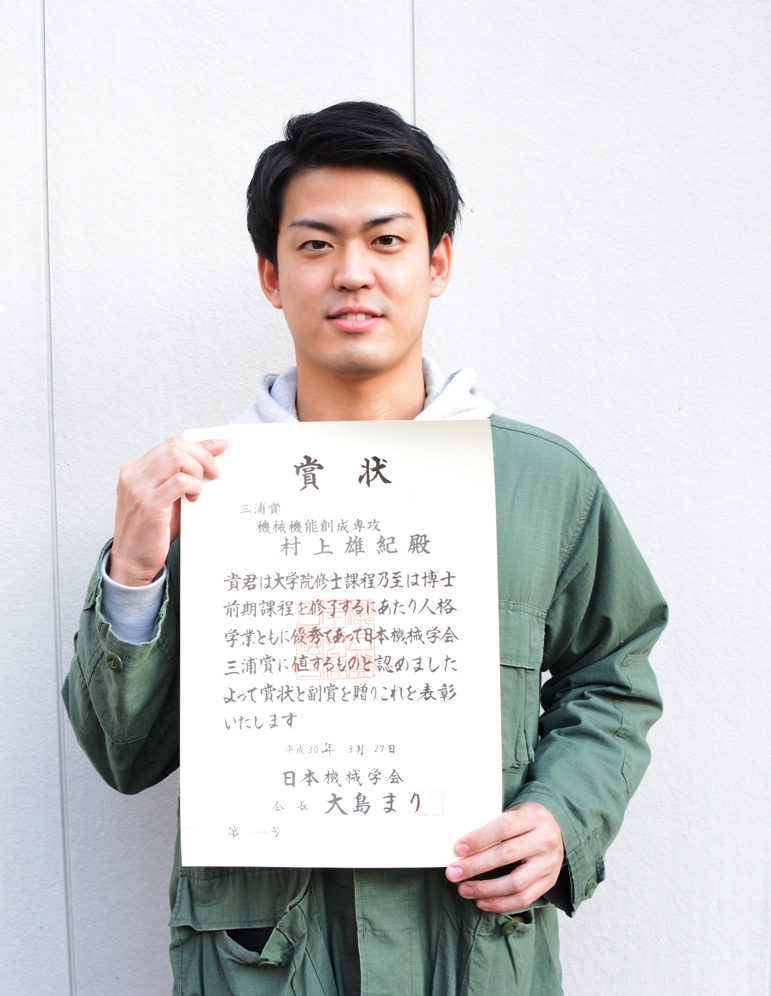 賞状
三浦賞
機械機能創成専攻
村上雄紀殿
貴君は大学院修士課程乃至は博士
前期課程を修了するにあたり人格
学業ともに優秀であって日本機械学会
三浦賞に値するものと認めました
よって賞状と副賞を贈りこれを表彰
いたします
平成30年 3月 27日
日本機械学会
会長 大島まり
第 号